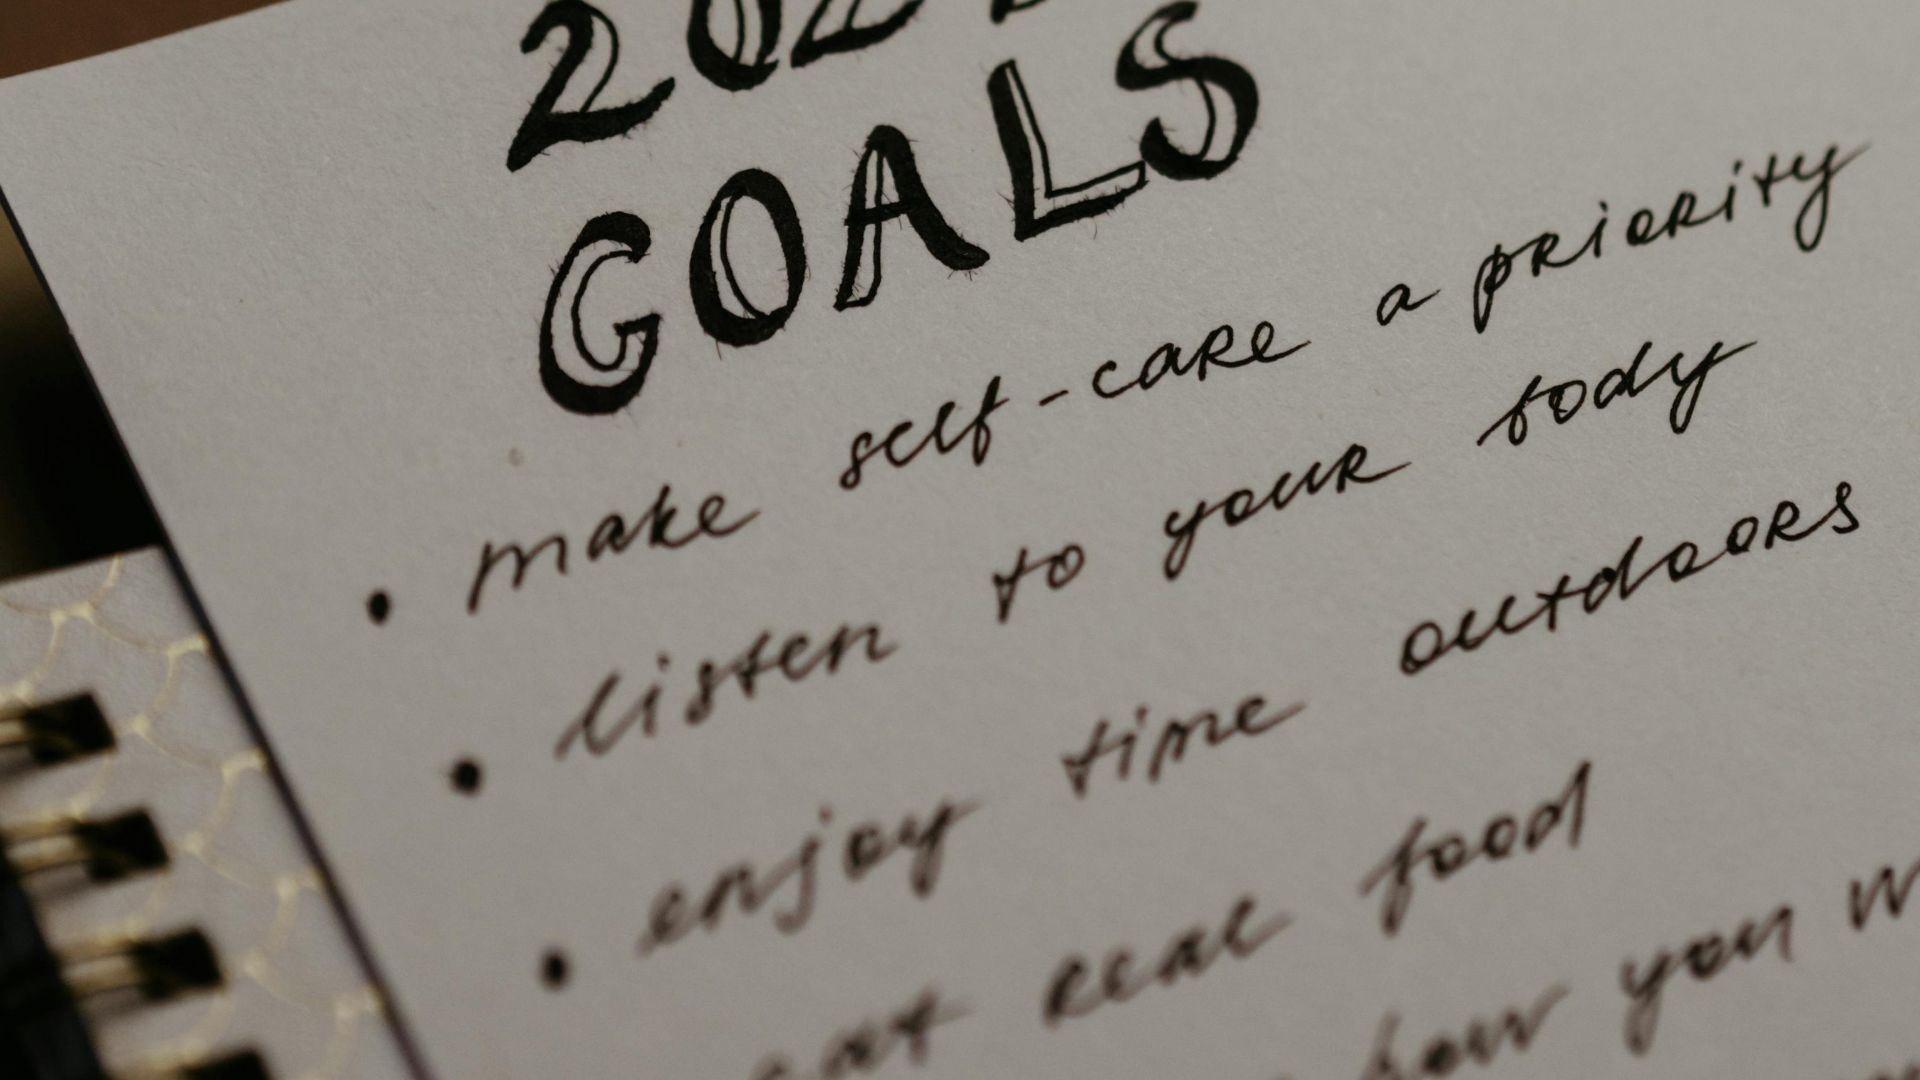 GOALS
• make self-care a priority
• listen to your body
• enjoy time outdoors
eat real food
how you